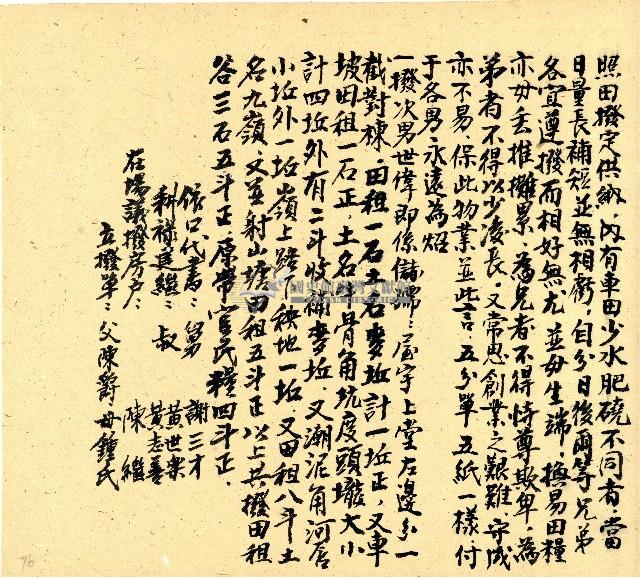 照田撥定供納，內有車田少水肥磽不同者，當
日量長補短並無相虧，自分日後爾等兄弟
各宜遵撥而相好無尤並毋生端，換易田糧
亦毋丟推攤累，為兄者不得恃尊欺卑，為
弟者不得以少凌長，又常思創業之艱難守成
亦不易，保此物業並此言，五分單五紙一樣付
于各男，永遠為炤
一撥次男世偉即係儲端：屋宇上堂左邊分一
截對棟，田租一石土名麥坵計一坵正，又車
坡田租一石正，土名牛骨角坑度頭壠大小
計四坵外有二斗收補麥坵，又瀨泥角河唇
小坵外一坵嶺上路：秧地一坵，又田租八斗土
名九嶺，又並射山塘田租五斗正以上共撥田租
谷三石五斗正，原帶官民糧四斗正，
依口代書：舅 謝三才
黃世榮
科禄建繼：叔 黃志善
在場議撥房戶： 陳繼
立撥單：父陳爵母鍾氏
96